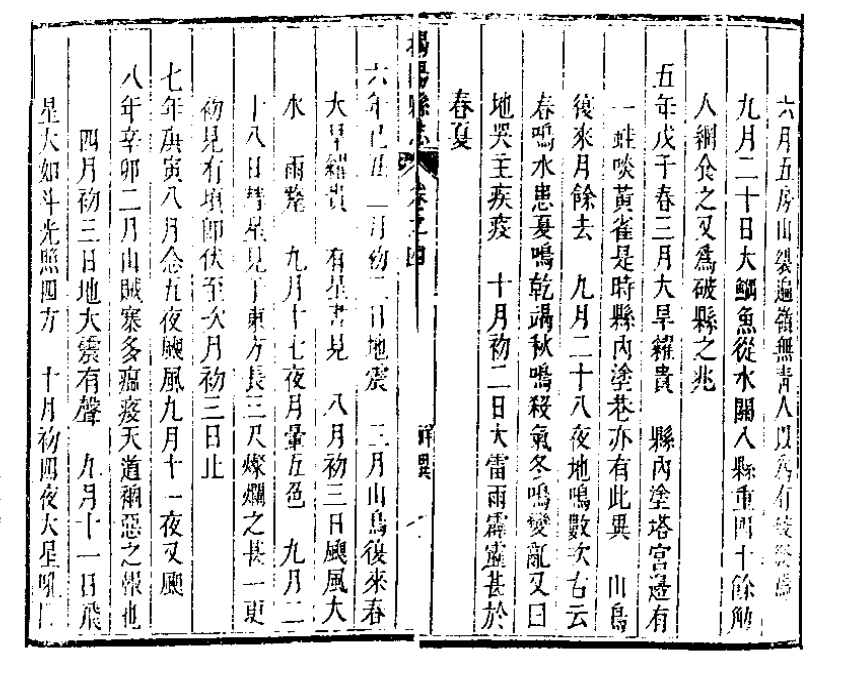 六月五房山裂遍嶺無青人以為有
九月二十日大鯛魚從水關入縣重四十餘觔
人網食之又爲破縣之兆
五年戊子春三月大旱糴貴　縣內塗塔宮邊有
一蛙啖黃雀是時縣內塗巷亦有此異　山鳥
復來月餘去　九月二十八夜地鳴數次占云
春鳴水患夏鳴乾渴秋鳴殺氣冬鳴變亂又曰
地哭主疾疫　十月初二日大雷雨霹靂甚於
春夏
揭陽縣志　卷之四　祥異
六年己丑二月初二日地震　三月山鳥復來春
大旱糴貴　有星晝見　八月初三日颶風大
水　雨雹　九月十七夜月暈五色　九月二
十八日彗星見丁東方長三尺燦爛之甚一更
初見有頃卽伏至次月初三日止
七年庚寅八月念五夜颶風九月十一夜又颶
八年辛卯二月山賊寨多瘟疫天道禍惡之報也
四月初三日地大震有聲　九月十一日飛
星大如斗光照四方　十月初四夜大星